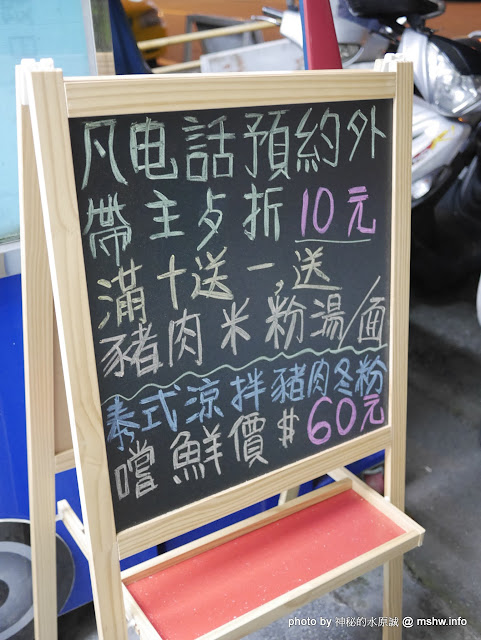 凡电話預約外
帶主歺折10元
滿十送一,送
豬肉米粉湯/面
泰式涼拌豬肉冬粉
嚐鮮價$60元
photo by 神秘的水原誠 @ mshw.info